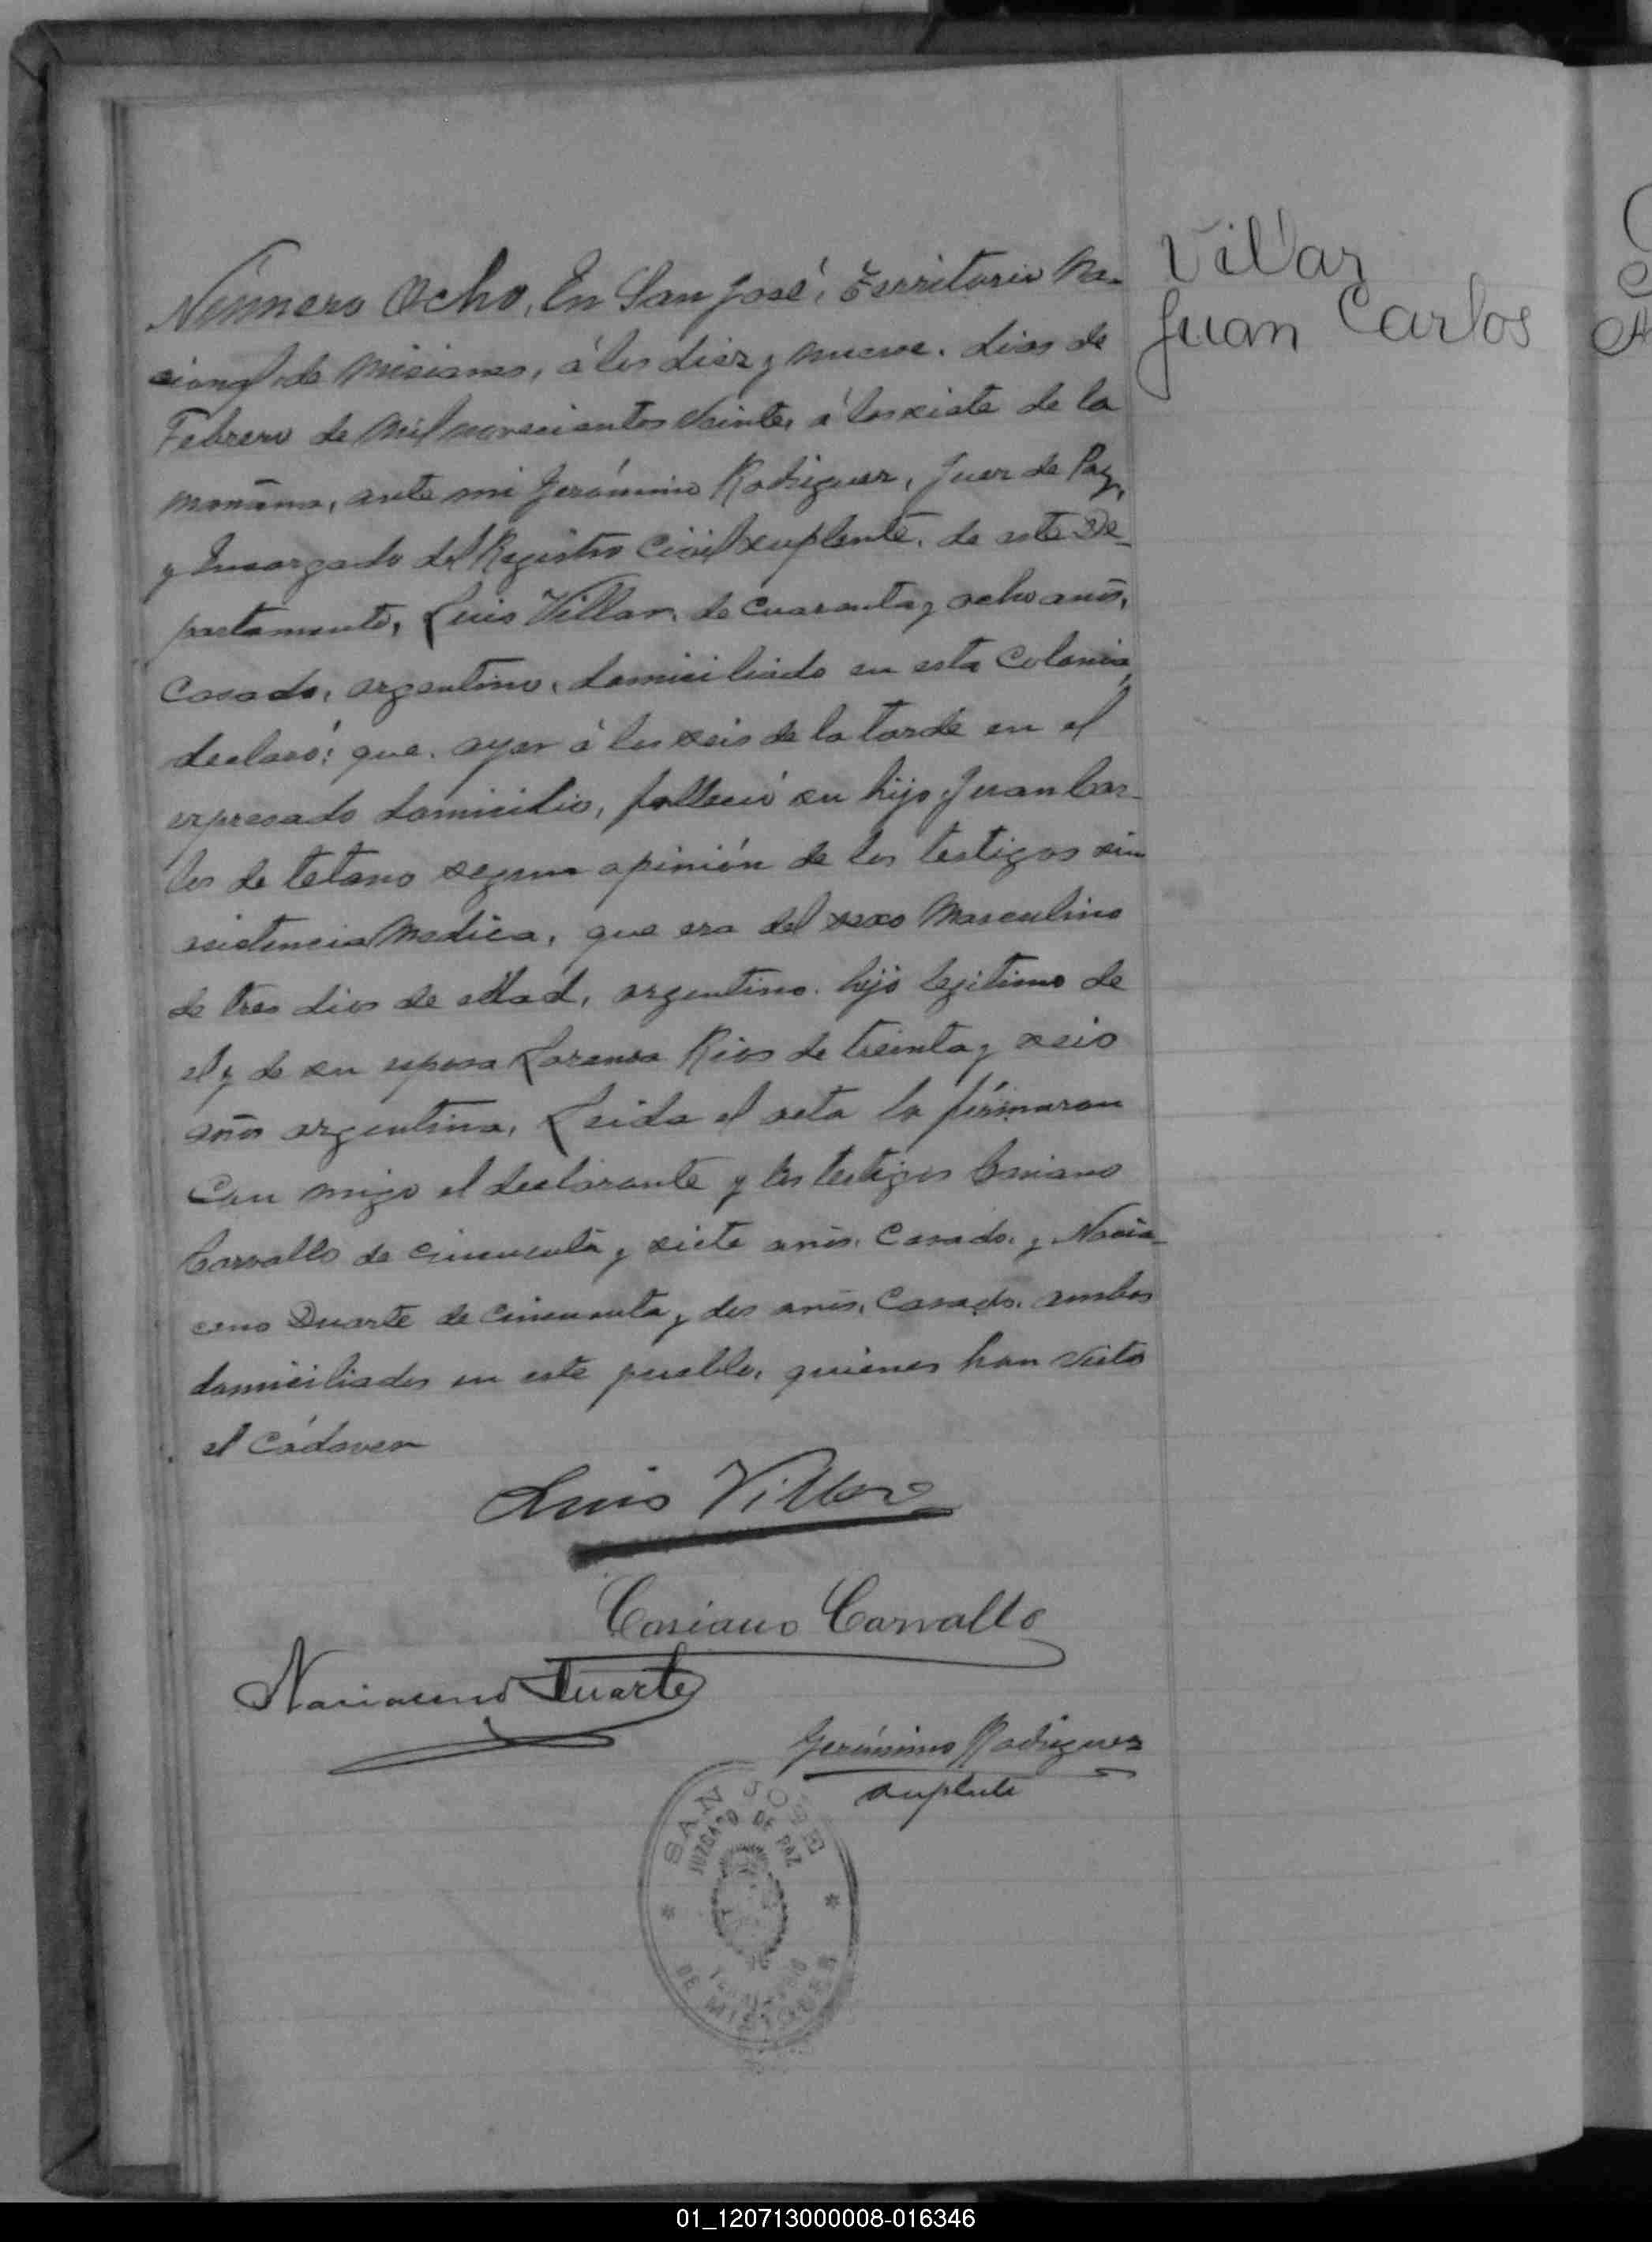 Villar
Juan Carlos
Número Ocho, En San José, Territorio Na-
cional de Misiones, á los diez y nueve. dias de
Febrero de Mil novecientos Veinte, á las siete de la
mañana, ante mi Jerónimo Rodriguez, Juez de Paz,
y Encargado del Registro Civil suplente, de este De-
partamento, Luis Villar, de cuarenta y ocho años,
Casado, argentino, domiciliado en esta Colonia,
declaró: que ayer á las seis de la tarde en el
expresado domicilio, falleció su hijo Juan Car-
los de tetano segun opinión de los testigos sin
asistencia Medica, que era del sexo Masculino
de tres dias de edad, argentino. hijo legitimo de
el y de su esposa Lorensa Rios de treinta y seis
años argentina, Leida el acta la firmaron
Con migo el declarante y los testigos Casiano
Carvallo de cincuenta y siete años, Casado, y Naria-
ceno Duarte de cincuenta y dos años, Casado, ambos
domiciliados en este pueblo, quienes han visto
el Cádaver
Luis Villar
Casiano Carvallo
Nariaceno Duarte
Jerónimo Rodriguez
suplente
SAN JOSE
JUZGADO DE PAZ
TERRITORIO
DE MISIONES
01_120713000008-016346